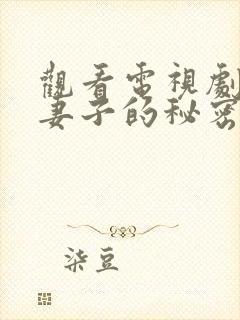 觀看電視劇
妻子的秘密
柒豆